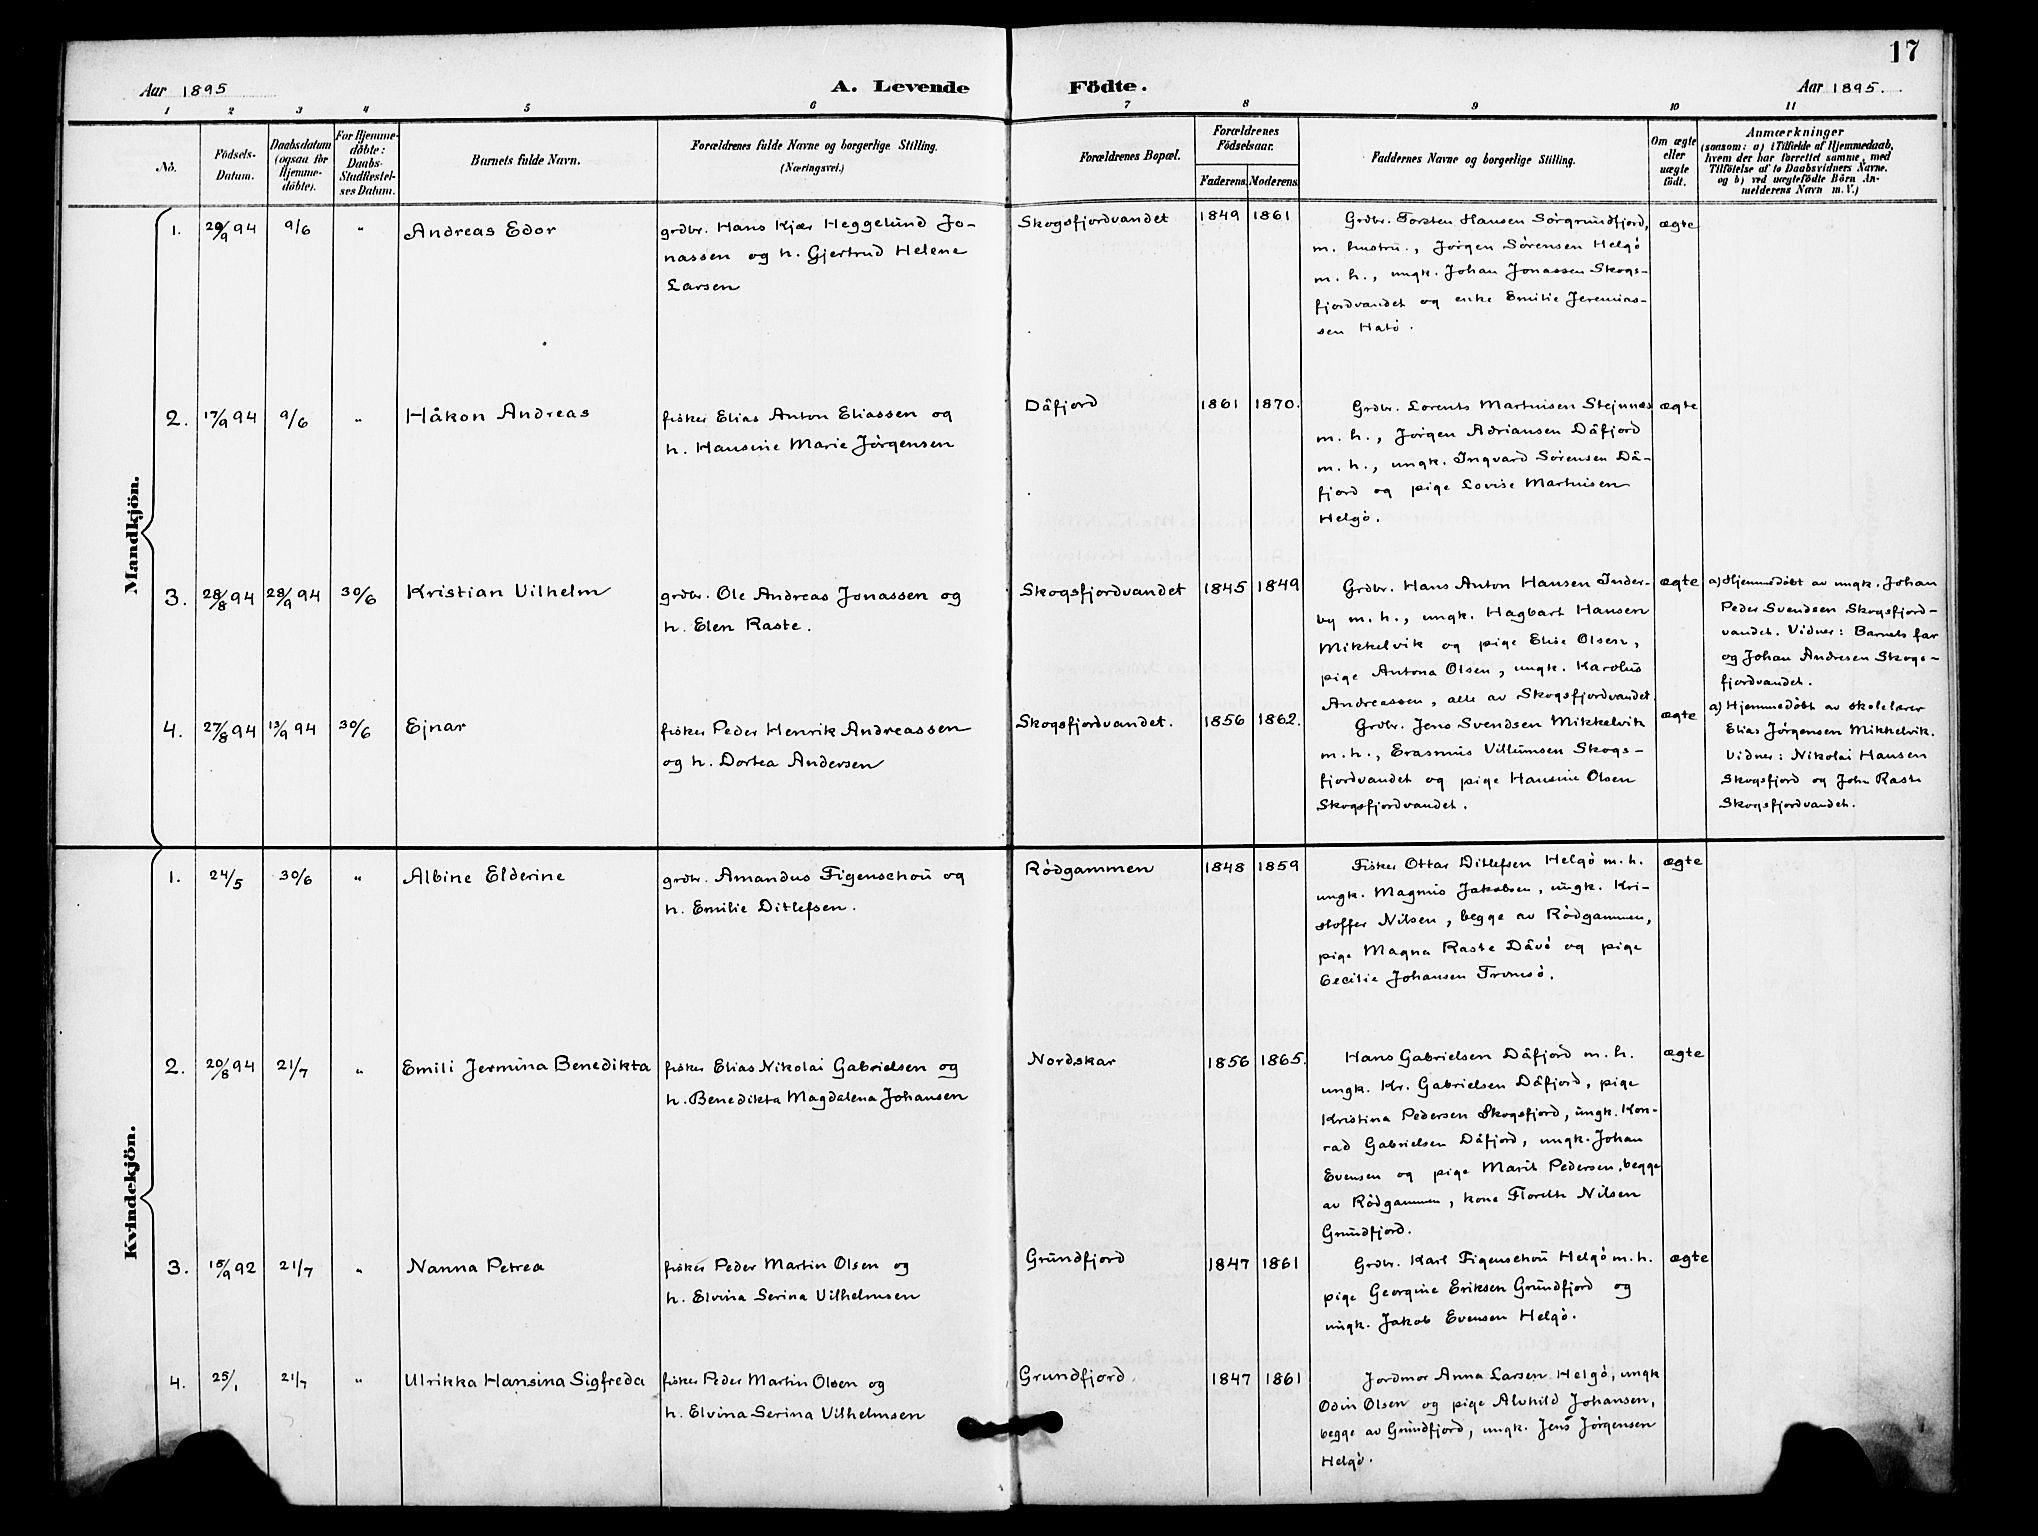 17
Aar 1895 A. Levende Födte. Aar 1895.
1 2 3 4 5 6 7 8 9 10 11
No.
Födsels-
Datum.
Daabsdatum
(ogsaa for
Hjemme-
döbte).
For Hjemme-
döbte:
Daabs-
Stadfæstel-
ses Datum.
Barnets fulde Navn.
Forældrenes fulde Navne og borgerlige Stilling.
(Næringsvei.)
Forældrenes Bopæl.
Forældrenes
Födselsaar.
Faderens. Moderens.
Faddernes Navne og borgerlige Stilling.
Om ægte
eller
uægte
födt.
Anmærkninger
(saasom: a) i Tilfælde af Hjemmedaab,
hvem der har forrettet samme, med
Tilföielse af to Daabsvidners Navne.
og b) ved uægtefödte Börn An-
melderens Navn m. V.)
Mandkjön.
1. 29/9 94 9/6 " Andreas Edor
grdbr. Hans Kjær Heggelund Jo-
nassen og h. Gjertrud Helene
Larsen
Skogsfjordvandet 1849 1861
Grdbr. Torsten Hansen Sørgrundfjord,
m. hustru., Jørgen Sørensen Helgø
m. h., ungk. Johan Jonassen Skogs-
fjordvandet og enke Emilie Jeremias-
sen Hatø.
ægte
2. 17/9 94 9/6 " Håkon Andreas
fisker Elias Anton Eliassen og
h. Hansine Marie Jørgensen
Dåfjord 1861 1870.
Grdbr. Lorents Martinsen Stejnnes
m. h., Jørgen Adriansen Dåfjord
m. h., ungk. Ingvard Sørensen Då-
fjord og pige Lovise Martinsen
Helgø.
ægte
3. 28/8 94 28/9 94 30/6 Kristian Vilhelm
grdbr. Ole Andreas Jonassen og
h. Elen Raste.
Skogsfjordvandet 1845 1849
Grdbr. Hans Anton Hansen Inder-
by m. h., ungk. Hagbart Hansen
Mikkelvik og pige Elise Olsen,
pige Antona Olsen, ungk. Karolus
Andreassen, alle av Skogsfjordvandet.
ægte
a) Hjemmedøbt av ungk. Johan
Peder Svendsen Skogsfjord-
vandet. Vidner: Barnets far
og Johan Andresen Skogs-
fjordvandet.
4. 27/8 94 13/9 94 30/6 Ejnar
fisker Peder Henrik Andreassen
og h. Dortea Andersen
Skogsfjordvandet. 1856 1862.
Grdbr. Jens Svendsen Mikkelvik
m. h., Erasmus Villumsen Skogs-
fjordvandet og pige Hansine Olsen
Skogsfjordvandet.
ægte
a) Hjemmedøbt av skolelærer
Elias Jørgensen Mikkelvik.
Vidner: Nikolai Hansen
Skogsfjord og John Raste
Skogsfjordvandet.
Kvindekjön.
1. 24/5 30/6 " Albine Elderine
grdbr. Amandus Figenschou og
h. Emilie Ditlefsen.
Rödgammen 1848 1859
Fisker Ottar Ditlefsen Helgø m. h.
ungk. Magnus Jakobsen, ungk. Kri-
stoffer Nilsen, begge av Rödgammen,
pige Magna Raste Dåvø og pige
Cecilie Johansen Tromsø.
ægte
2. 20/8 94 21/7 " Emili Jermina Benedikta
fisker Elias Nikolai Gabrielsen og
h. Benedikta Magdalena Johansen
Nordskar 1856 1865.
Hans Gabrielsen Dåfjord m. h.
ungk. Kr. Gabrielsen Dåfjord, pige
Kristina Pedersen Skogsfjord, ungk. Kon-
rad Gabrielsen Dåfjord, ungk. Johan
Evensen og pige Marit Pedersen, begge
av Rödgammen, kone Floreth Nilsen
Grundfjord.
ægte
3. 15/9 92 21/7 " Nanna Petrea
fisker Peder Martin Olsen og
h. Elvina Serina Vilhelmsen
Grundfjord 1847 1861
Grdbr. Karl Figenschou Helgø m. h.
pige Georgine Eriksen Grundfjord og
ungk. Jakob Evensen Helgø.
ægte
4. 25/1 21/7 " Ulrikka Hansina Sigfreda
fisker Peder Martin Olsen og
h. Elvina Serina Vilhelmsen
Grundfjord 1847 1861
Jordmor Anna Larsen Helgø, ungk
Odin Olsen og pige Alvhild Johansen,
begge av Grundfjord, ungk. Jens Jørgensen
Helgø.